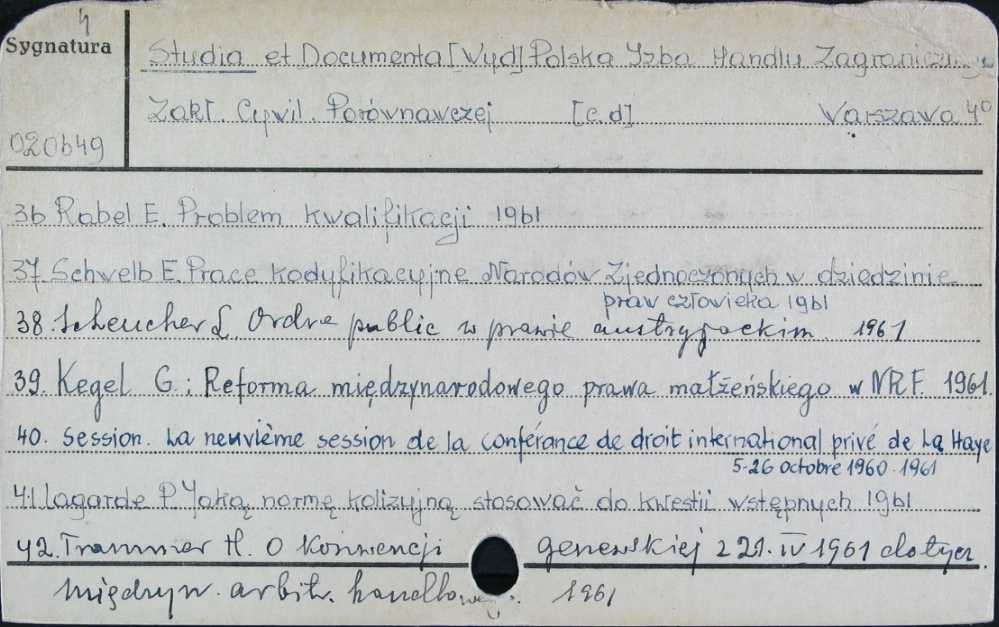 4
Sygnatura
Studia et Documenta [Wyd] Polska Izba Handlu Zagraniczn.
Zakł. Cywil. Porównawczej [c.d] Warszawa 4°
020649
36. Rabel E. Problem kwalifikacji 1961
37. Schwelb E. Prace kodyfikacyjne Narodów Zjednoczonych w dziedzinie
praw człowieka 1961
38. Scheucher L. Ordre public w prawie austryjackim. 1961
39. Kegel G.: Reforma międzynarodowego prawa małżeńskiego w NRF. 1961.
40. Session. La neuvième session de la conférance de droit international privé de La Haye
5-26 octobre 1960. 1961
41 Lagarde P. Jaką normę kolizyjną stosować do kwestii wstępnych 1961
42. Trammer H. O Konwencji genewskiej z 21. IV 1961 dotycz.
międzyn. arbitr. handlowego. 1961